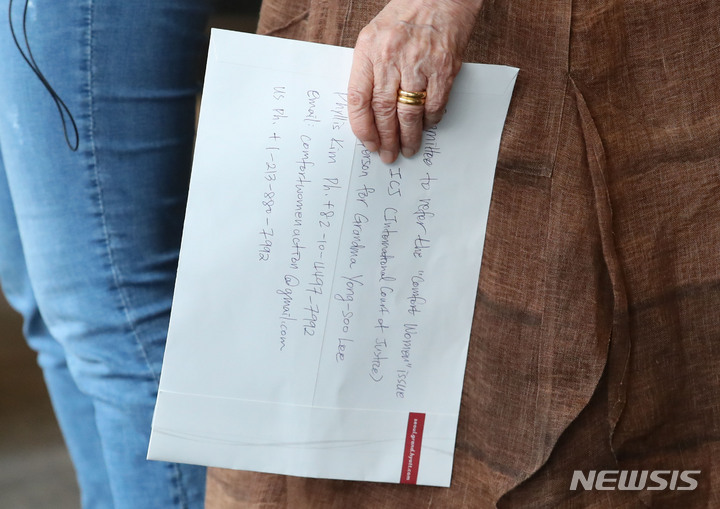 mmittee to refer the "Comfort Women" issue
ICJ (International Court of Justice)
erson for Grandma Yong-Soo Lee
Phyllis Kim Ph. +82-10-4497-7992
Email: comfortwomenaction@gmail.com
US Ph. +1-213-880-7992
seoul.grand.hyatt.com
NEWSIS